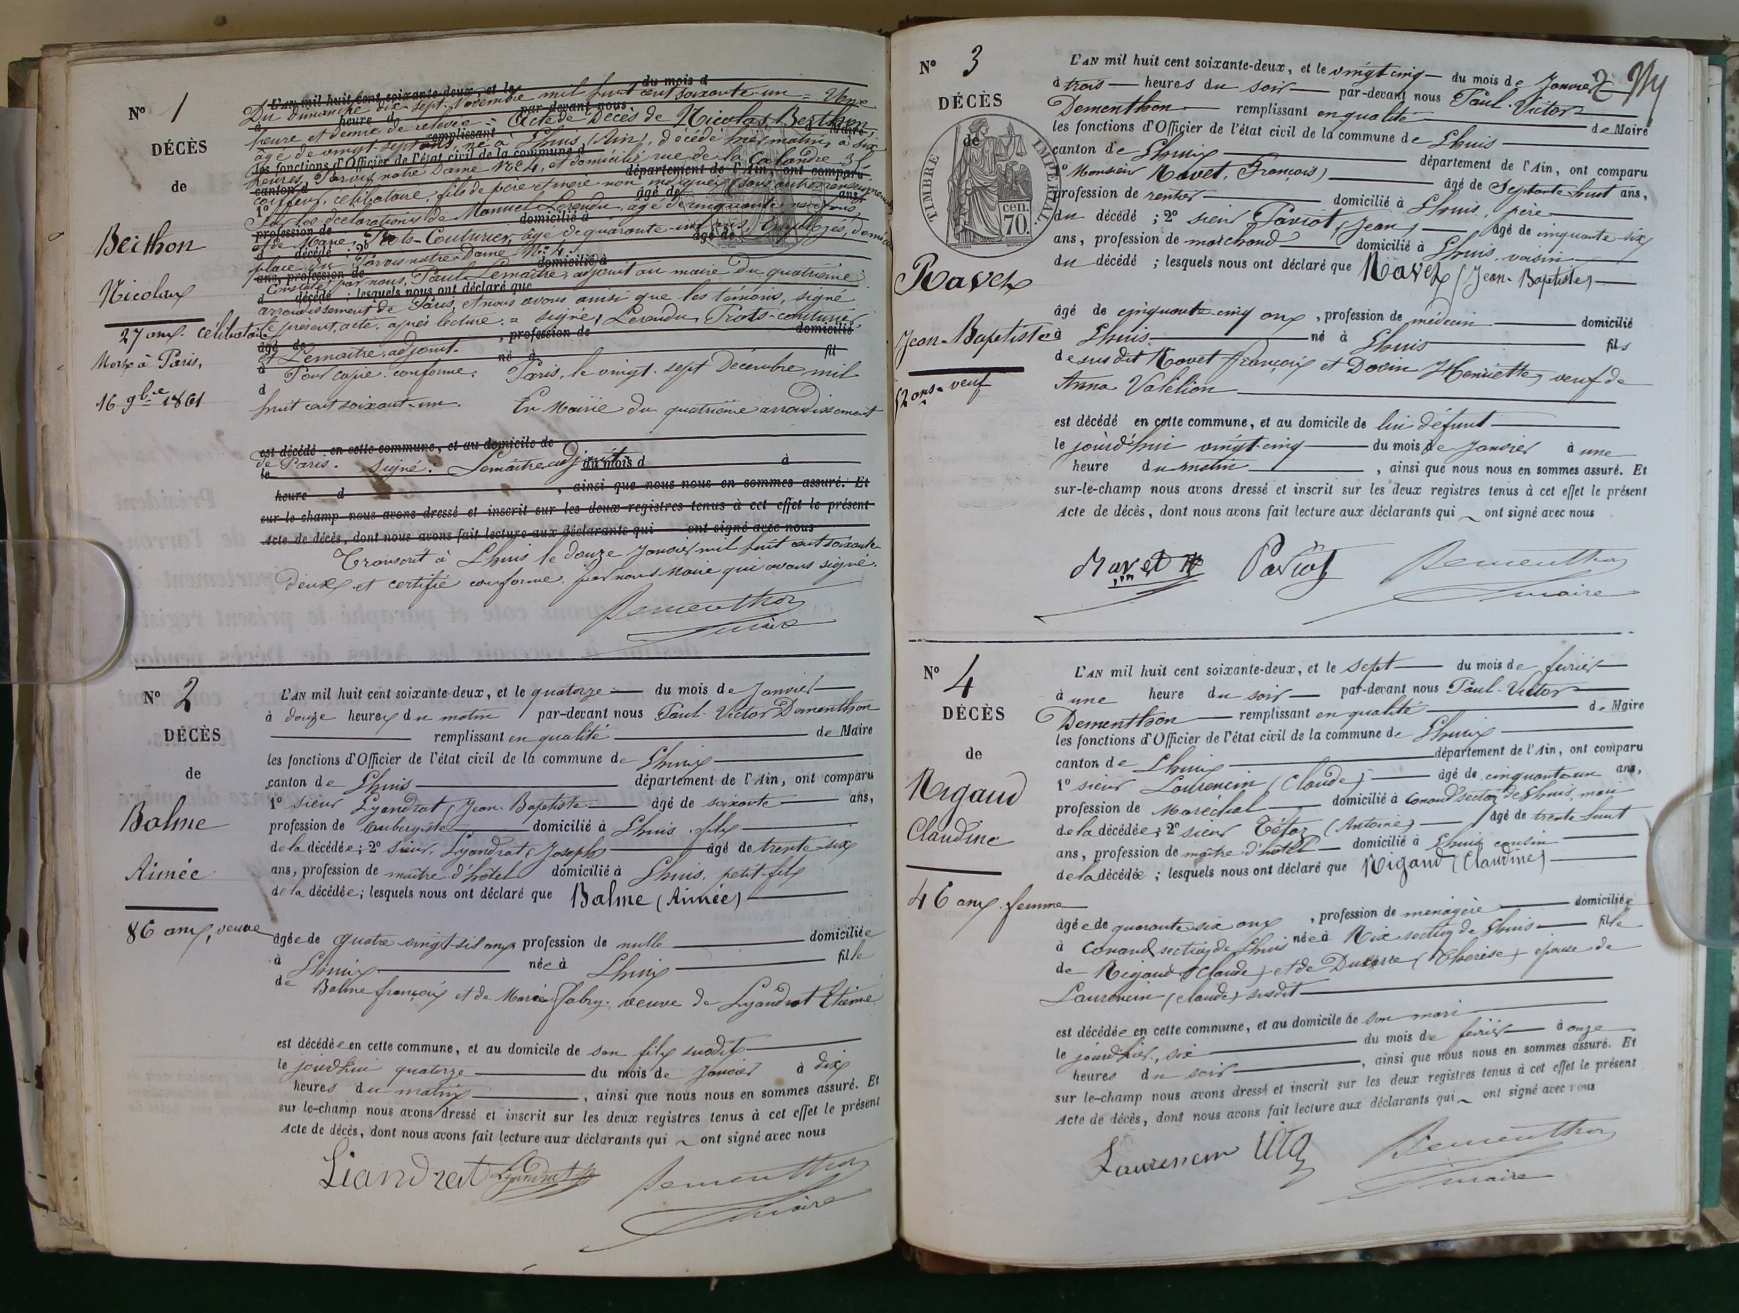 N° 1
DÉCÈS
de
Berthon
Nicolas
27 ans. célibataire
Mort à Paris,
16 9bre 1861
L'AN mil huit cent soixante-deux, et le du mois d
Du dimanche dix-sept novembre mil huit cent soixante un = Une
heure d par-devant nous
heure et demie de relevée = Acte de Décès de Nicolas Berthon,
remplissant de Maire
âgé de vingt sept ans né à Lhuis (Ain), décédé hier matin à six
les fonctions d'Officier de l'état civil de la commune d
heures, Parvis notre Dame N° 4, et domicilié rue de la Calandre 31
canton d département de l'Ain, ont comparu
coiffeur, célibataire, fils de père et mère non marqués (sans autres renseignements
1° âgé de ans,
Sur les déclarations de Manuel Lerendu, âgé de cinquante neuf ans,
profession de domicilié à
et de Marie Prots-Couturier, âgé de quarante un ans, employés, domiciliés
d décédé ; 2° âgé de
place du Parvis notre Dame N° 4.
ans, profession de domicilié à
Constaté par nous, Paul Lemaître, adjoint au maire du quatrième
d décédé ; lesquels nous ont déclaré que
arrondissement de Paris, et nous avons ainsi que les témoins, signé
le présent acte, après lecture. = signé, Lerendu, Prots-couturier,
âgé de , profession de domicilié
et Lemaître, adjoint.
à né à fil
Pour copie conforme. Paris, le vingt-sept Décembre mil
d
huit cent soixante-un. En Mairie du quatrième arrondissement
est décédé en cette commune, et au domicile de
de Paris. signé. Lemaître adjoint
le du mois d à
heure d , ainsi que nous nous en sommes assuré. Et
sur-le-champ nous avons dressé et inscrit sur les deux registres tenus à cet effet le présent
acte de décès, dont nous avons fait lecture aux déclarants qui ont signé avec nous
Transcrit à Lhuis le douze Janvier mil huit cent soixante
deux et certifié conforme par nous Maire qui avons signé.
Dementhon
maire
N° 2
DÉCÈS
de
Balme
Aimée
86 ans, veuve
L'AN mil huit cent soixante-deux, et le quatorze du mois de Janvier
à douze heures du matin par-devant nous Paul-Victor Dementhon
remplissant en qualité de Maire
les fonctions d'Officier de l'état civil de la commune de Lhuis
canton de Lhuis département de l'Ain, ont comparu
1° sieur Lyandrat, Jean-Baptiste âgé de soixante ans,
profession de aubergiste domicilié à Lhuis, fils
de la décédée ; 2° sieur Lyandrat, Joseph âgé de trente six
ans, profession de maître d'hôtel domicilié à Lhuis, petit-fils
de la décédée ; lesquels nous ont déclaré que Balme (Aimée)
âgée de quatre-vingt-six ans, profession de nulle domiciliée
à Lhuis née à Lhuis fille
de Balme françois et de Marie Jabry, veuve de Lyandrat Etienne
est décédée en cette commune, et au domicile de son fils susdit
le jourd'hui quatorze du mois de Janvier à dix
heures du matin , ainsi que nous nous en sommes assuré. Et
sur le-champ nous avons dressé et inscrit sur les deux registres tenus à cet effet le présent
acte de décès, dont nous avons fait lecture aux déclarants qui ~ ont signé avec nous
Liandrat Lyandrat Dementhon
maire
N° 3
DÉCÈS
de
TIMBRE IMPÉRIAL.
cen.
70.
Ravet
Jean-Baptiste
52 ans, veuf
L'AN mil huit cent soixante-deux, et le vingt cinq du mois de Janvier
à trois heures du soir par-devant nous Paul-Victor
Dementhon remplissant en qualité de Maire
les fonctions d'Officier de l'état civil de la commune de Lhuis
canton de Lhuis département de l'Ain, ont comparu
1° Monsieur Ravet, François) âgé de Septante huit ans,
profession de rentier domicilié à Lhuis, père
du décédé ; 2° sieur Pariot, (Jean) âgé de cinquante six
ans, profession de marchand domicilié à Lhuis, voisin
du décédé ; lesquels nous ont déclaré que Ravet (Jean-Baptiste)
âgé de cinquante cinq ans , profession de médecin domicilié
à Lhuis né à Lhuis fils
de susdit Ravet françois et Docin Henriette, veuf de
Anna Valélion
est décédé en cette commune, et au domicile de lui défunt
le jourd'hui vingt cinq du mois de Janvier à une
heure du matin , ainsi que nous nous en sommes assuré. Et
sur-le-champ nous avons dressé et inscrit sur les deux registres tenus à cet effet le présent
acte de décès, dont nous avons fait lecture aux déclarants qui ~ ont signé avec nous
Ravet Pariot Dementhon
maire
N° 4
DÉCÈS
de
Rigaud
Claudine
46 ans, femme
L'AN mil huit cent soixante-deux, et le sept du mois de février
à une heure du soir par-devant nous Paul-Victor
Dementhon remplissant en qualité de Maire
les fonctions d'Officier de l'état civil de la commune de Lhuis
canton de Lhuis département de l'Ain, ont comparu
1° sieur Laurencin (Claude) âgé de cinquante un ans,
profession de Maréchal domicilié à Conand section de Lhuis, mari
de la décédée ; 2° sieur Tétaz (Antoine) âgé de trente huit
ans, profession de maître d'hôtel domicilié à Lhuis, cousin
de la décédée ; lesquels nous ont déclaré que Rigaud (Claudine)
âgée de quarante six ans , profession de ménagère domiciliée
à Conand section de Lhuis née à Rix section de Lhuis fille
de Rigaud (Claude) et de Ducarre (Thérèse) épouse de
Laurencin (claude) susdit
est décédée en cette commune, et au domicile de son mari
le jourd'hier, six du mois de février à onze
heures du soir , ainsi que nous nous en sommes assuré. Et
sur le-champ nous avons dressé et inscrit sur les deux registres tenus à cet effet le présent
acte de décès, dont nous avons fait lecture aux déclarants qui ~ ont signé avec nous
Laurencin Dementhon
maire